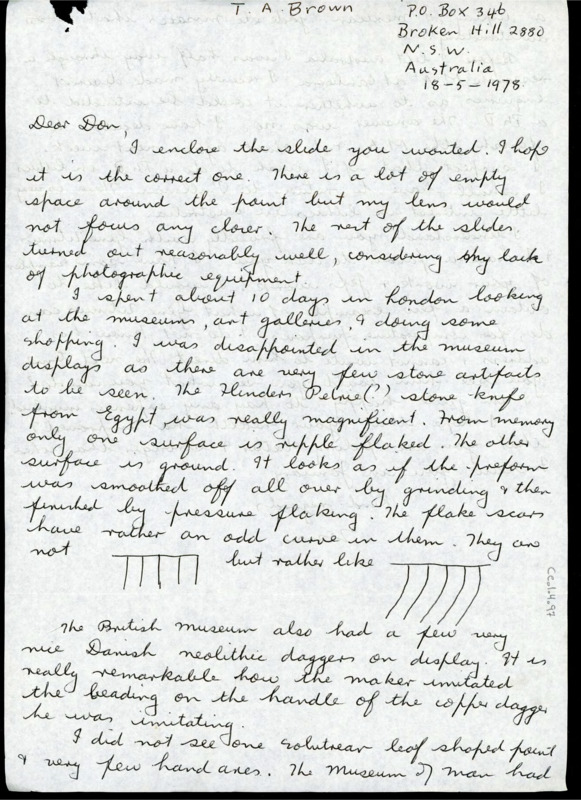 T. A. Brown
P.O. Box 346
Broken Hill 2880
N.S.W.
Australia
18-5-1978
Dear Don,
I enclose the slide you wanted. I hope
it is the correct one. There is a lot of empty
space around the point but my lens would
not focus any closer. The rest of the slides
turned out reasonably well, considering my lack
of photographic equipment.
I spent about 10 days in London looking
at the museums, art galleries, & doing some
shopping. I was disappointed in the museum
displays as there are very few stone artifacts
to be seen. The Flinders Petrie(?) stone knife
from Egypt was really magnificent. From memory
only one surface is ripple flaked. The other
surface is ground. It looks as if the preform
was smoothed off all over by grinding & then
finished by pressure flaking. The flake scars
have rather an odd curve in them. They are
not but rather like
The British Museum also had a few very
nice Danish neolithic daggers on display. It is
really remarkable how the maker imitated
the beading on the handle of the copper dagger
he was imitating.
I did not see one solutrean leaf shaped point
& very few hand axes. The Museum of man had